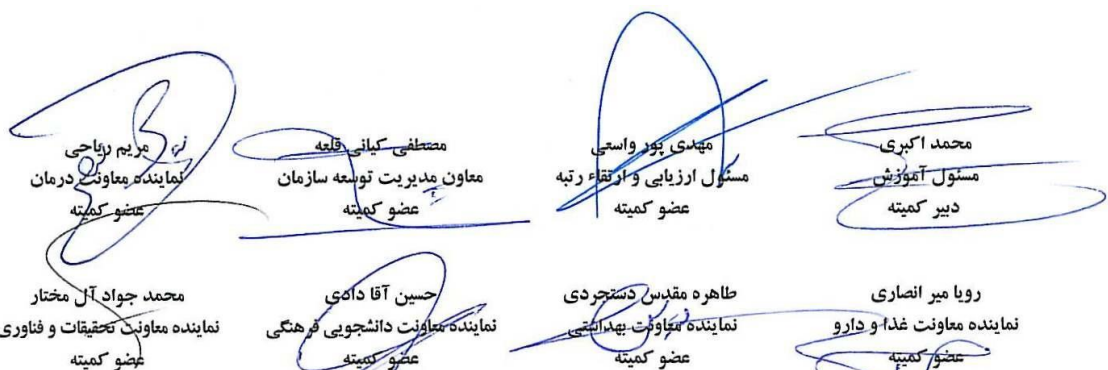 محمد اکبری
مسئول آموزش
دبیر کمیته
مهدی پور واسعی
مسئول ارزیابی و ارتقاء رتبه
عضو کمیته
مصطفی کیانی قلعه
معاون مدیریت توسعه سازمان
عضو کمیته
مریم ریاحی
نماینده معاونت درمان
عضو کمیته
رویا میر انصاری
نماینده معاونت غذا و دارو
عضو کمیته
طاهره مقدس دستجردی
نماینده معاونت بهداشتی
عضو کمیته
حسین آقا دادی
نماینده معاونت دانشجویی فرهنگی
عضو کمیته
محمد جواد آل مختار
نماینده معاونت تحقیقات و فناوری
عضو کمیته